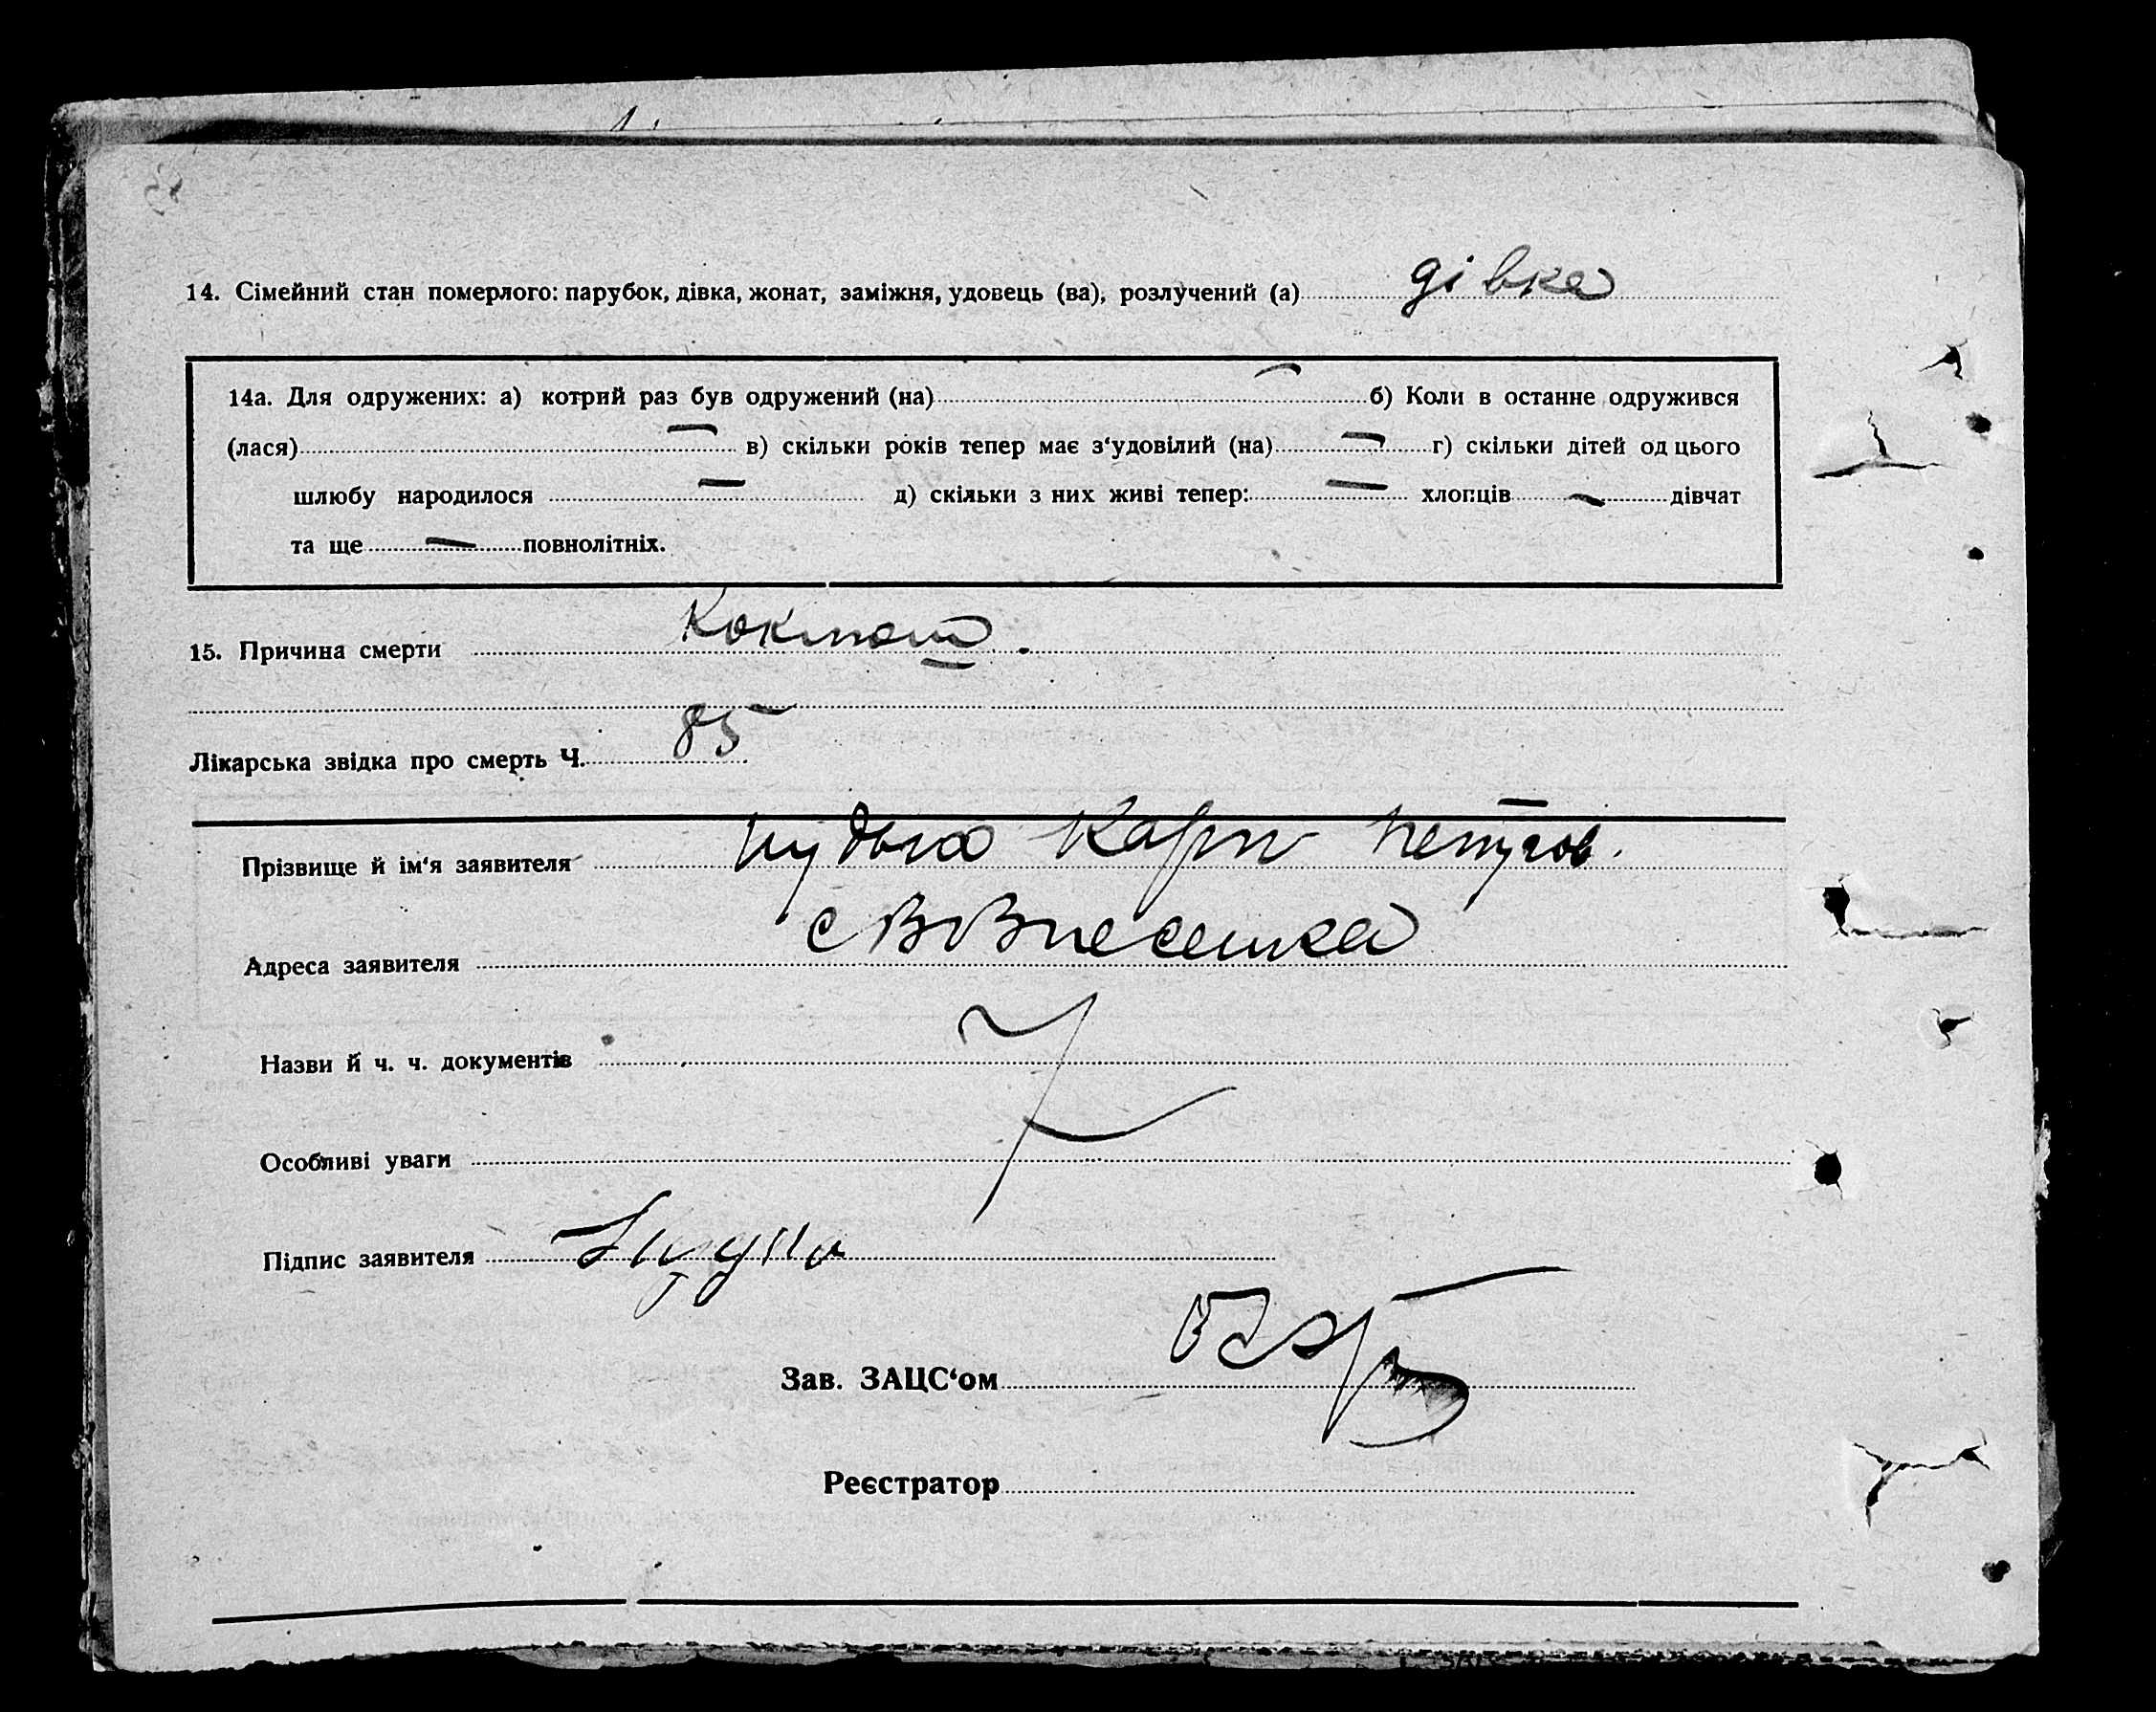 14. Сімейний стан померлого: парубок, дівка, жонат, заміжня, удовець (ва), розлучений (а) дівка
14а. Для одружених: а) котрий раз був одружений (на) — б) Коли в останне одружився
(лася) — в) скільки років тепер має з‘удовілий (на) — г) скільки дітей од цього
шлюбу народилося — д) скільки з них живі тепер: — хлопців — дівчат
та ще — повнолітніх.
15. Причина смерти
Лікарська звідка про смерть Ч. 85
Прізвище й ім‘я заявителя Карп
Адреса заявителя с Вовнесенка
Назви й ч. ч. документів
Особливі уваги
Підпис заявителя
Зав. ЗАЦС‘ом
Реєстратор